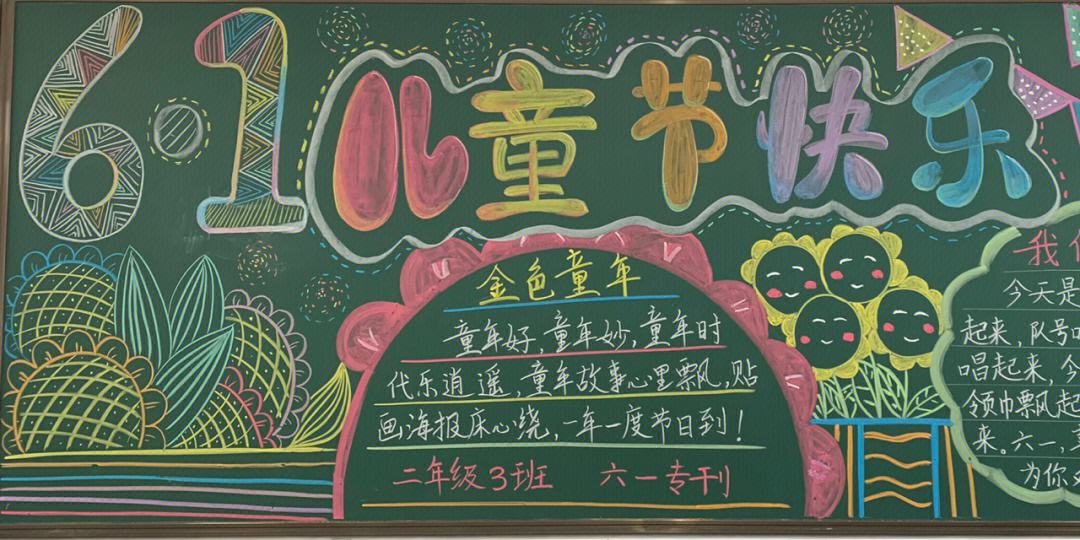 6·1
儿童节快乐
金色童年
童年好,童年妙,童年时
代乐逍遥,童年故事心里飘,贴
画海报床心绕,一年一度节日到!
二年级3班 六一专刊
我
今天是
起来,队号
唱起来,今
领巾飘风起
来。六一,
为你